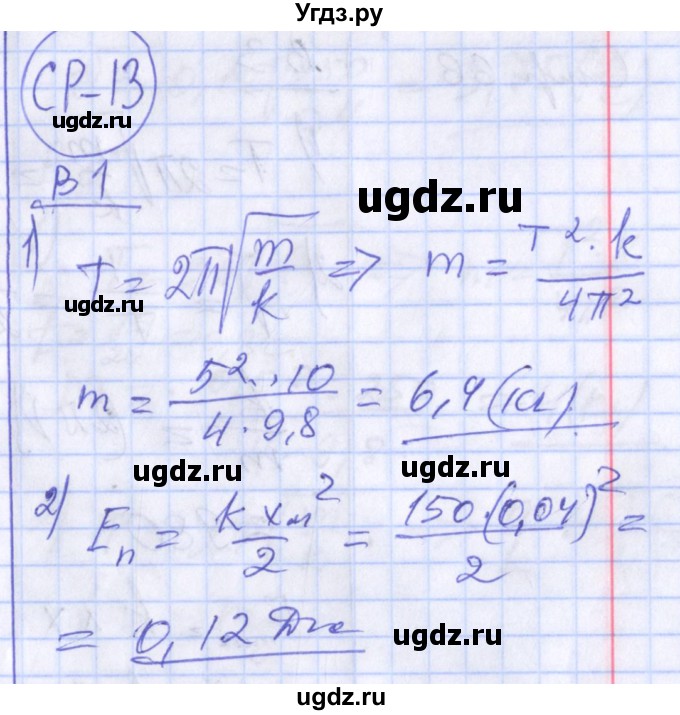 Угдз.ру
СР-13
ugdz.ru
В 1
ugdz.ru
1) T = 2π√(m/k) => m = T²·k / 4π²
ugdz.ru
m = 5²·10 / 4·9,8 = 6,4 (кг)
ugdz.ru
ugdz.ru
2) Eп = k xм² / 2 = 150·(0,04)² / 2 =
= 0,12 Дж
ugdz.ru
ugdz.ru